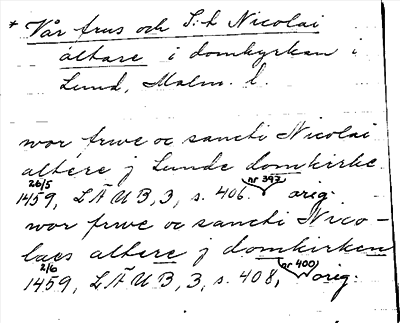 * Vår frus och S:t Nicolai
altare i domkyrkan i
Lund, Malm. l.
wor frwe oc sancti Nicolai
altere j Lunde domkirke
26/5 1459, LÄUB, 3, s. 406. (nr 397) orig.
wor frwe oc sancti Nico-
laes altere j domkirken
2/6 1459, LÄUB, 3, s. 408, (nr 400) orig.